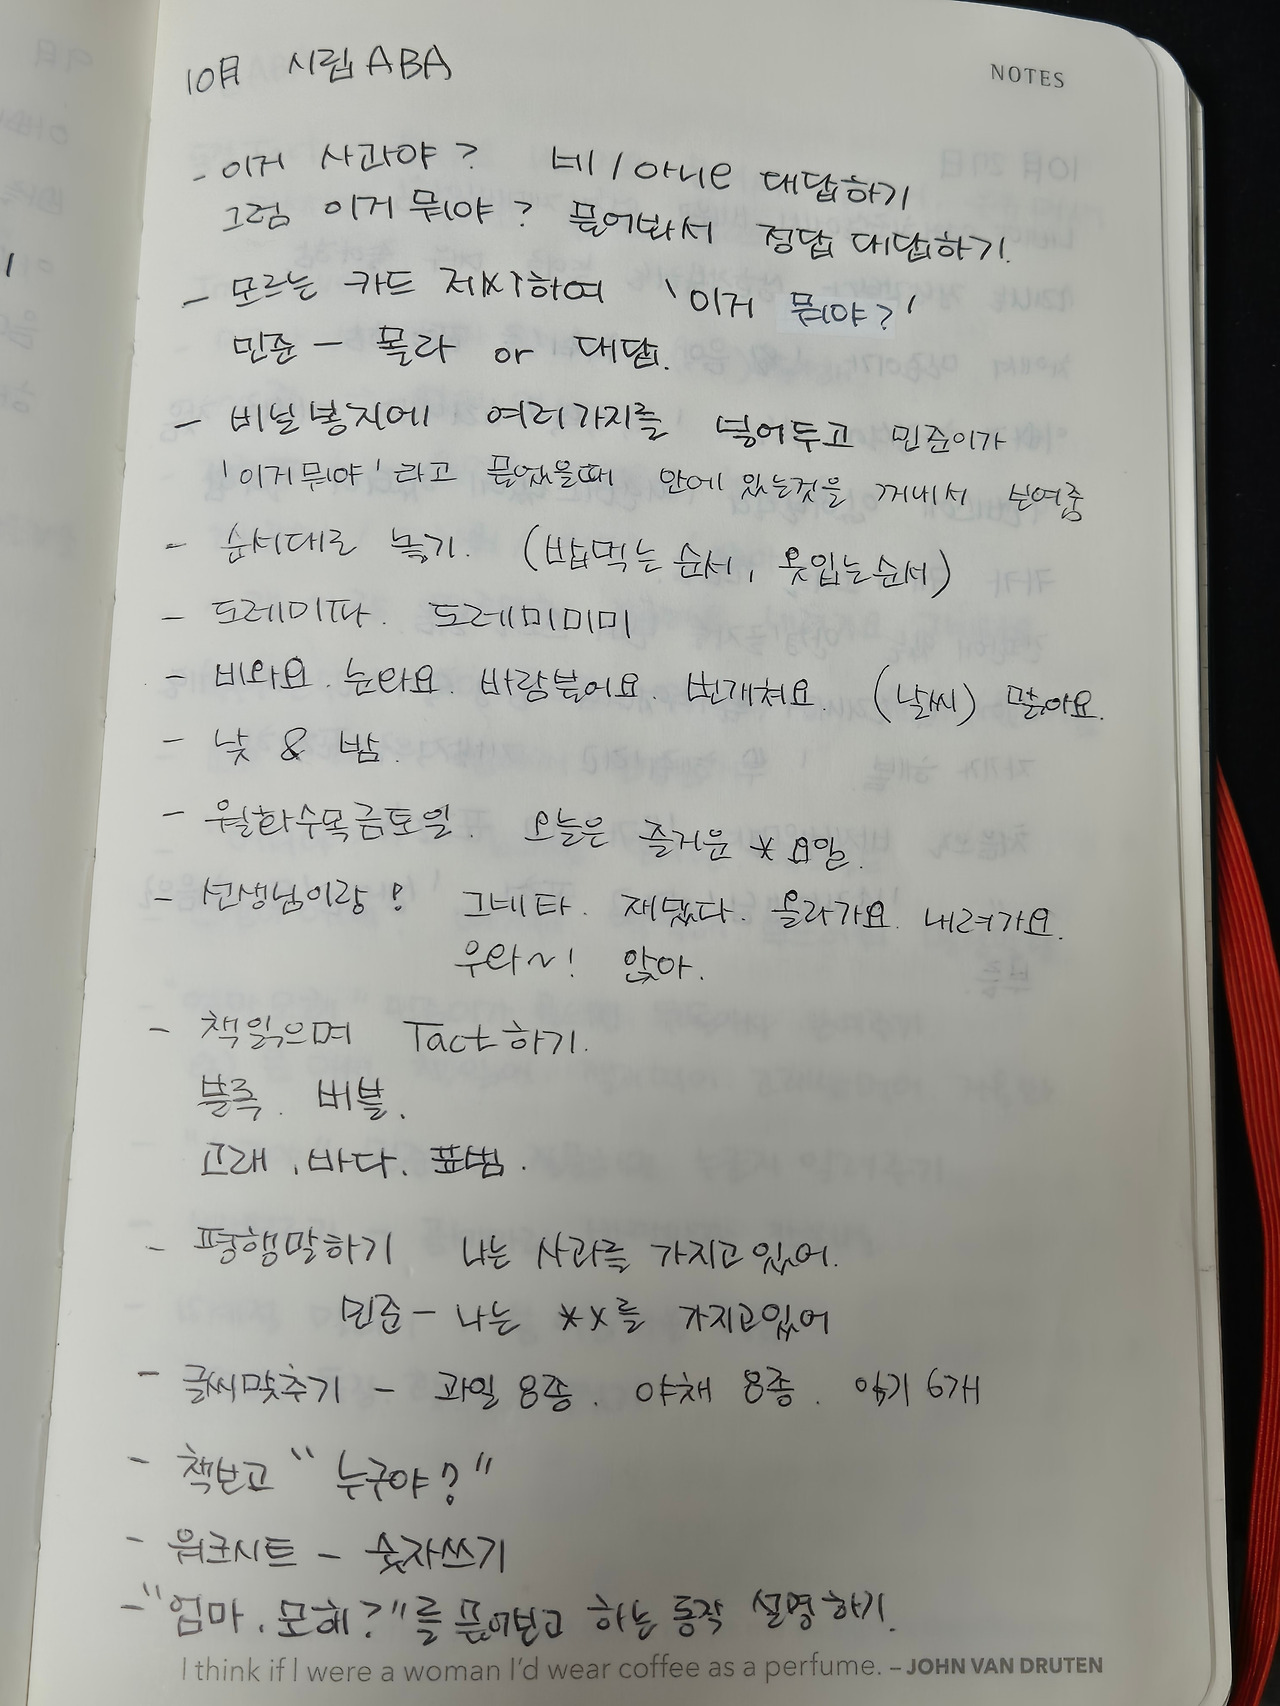 10月 시립 ABA
NOTES
- 이거 사과야? 네/아니오 대답하기
그럼 이거 뭐야? 물어봐서 정답 대답하기.
- 모르는 카드 제시하여 '이거 뭐야?'
민준 - 몰라 or 대답.
- 비닐봉지에 여러가지를 넣어두고 민준이가
'이거뭐야'라고 물었을때 안에 있는것을 꺼내서 보여줌
- 순서대로 놓기. (밥먹는 순서, 옷입는순서)
- 도레미파. 도레미미미
- 비와요. 눈와요. 바람불어요. 번개쳐요. (날씨) 맑아요.
- 낮 & 밤.
- 월화수목금토일. 오늘은 즐거운 * 요일.
- 선생님이랑! 그네타. 재밌다. 올라가요. 내려가요.
우와~! 앉아.
- 책읽으며 Tact하기.
블록. 버블.
고래, 바다. 표범.
- 평행말하기 나는 사과를 가지고있어.
민준 - 나는 **를 가지고있어
- 글씨맞추기 - 과일 8종. 야채 8종. 악기 6개
- 책보고 "누구야?"
- 워크시트 - 숫자쓰기
- "엄마, 모해?"를 물어보고 하는 동작 설명하기.
I think if I were a woman I'd wear coffee as a perfume. – JOHN VAN DRUTEN